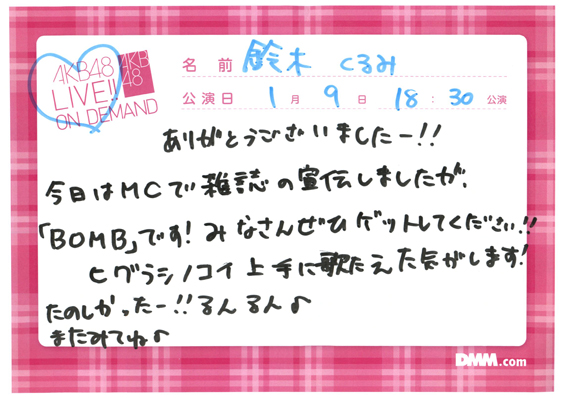 AKB48
LIVE!!
ON DEMAND
AKB
48
名前 鈴木 くるみ
公演日 1月 9日 18:30公演
ありがとうございましたー!!
今日はMCで雑誌の宣伝しましたが、
「BOMB」です!みなさんぜひゲットしてください!!
ヒグラシノコイ上手に歌えた気がします!
たのしかったー!!るんるん♪
またみてね♪
DMM.com